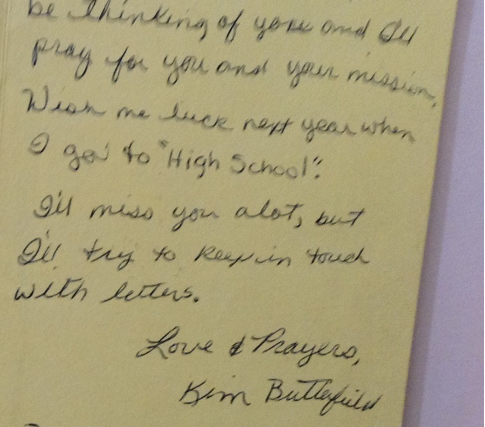 be thinking of you and I'll
pray for you and your mission.
Wish me luck next year when
I go to "High School".
I'll miss you alot, but
I'll try to keep in touch
with letters.
Love & Prayers,
Kim Butterfield